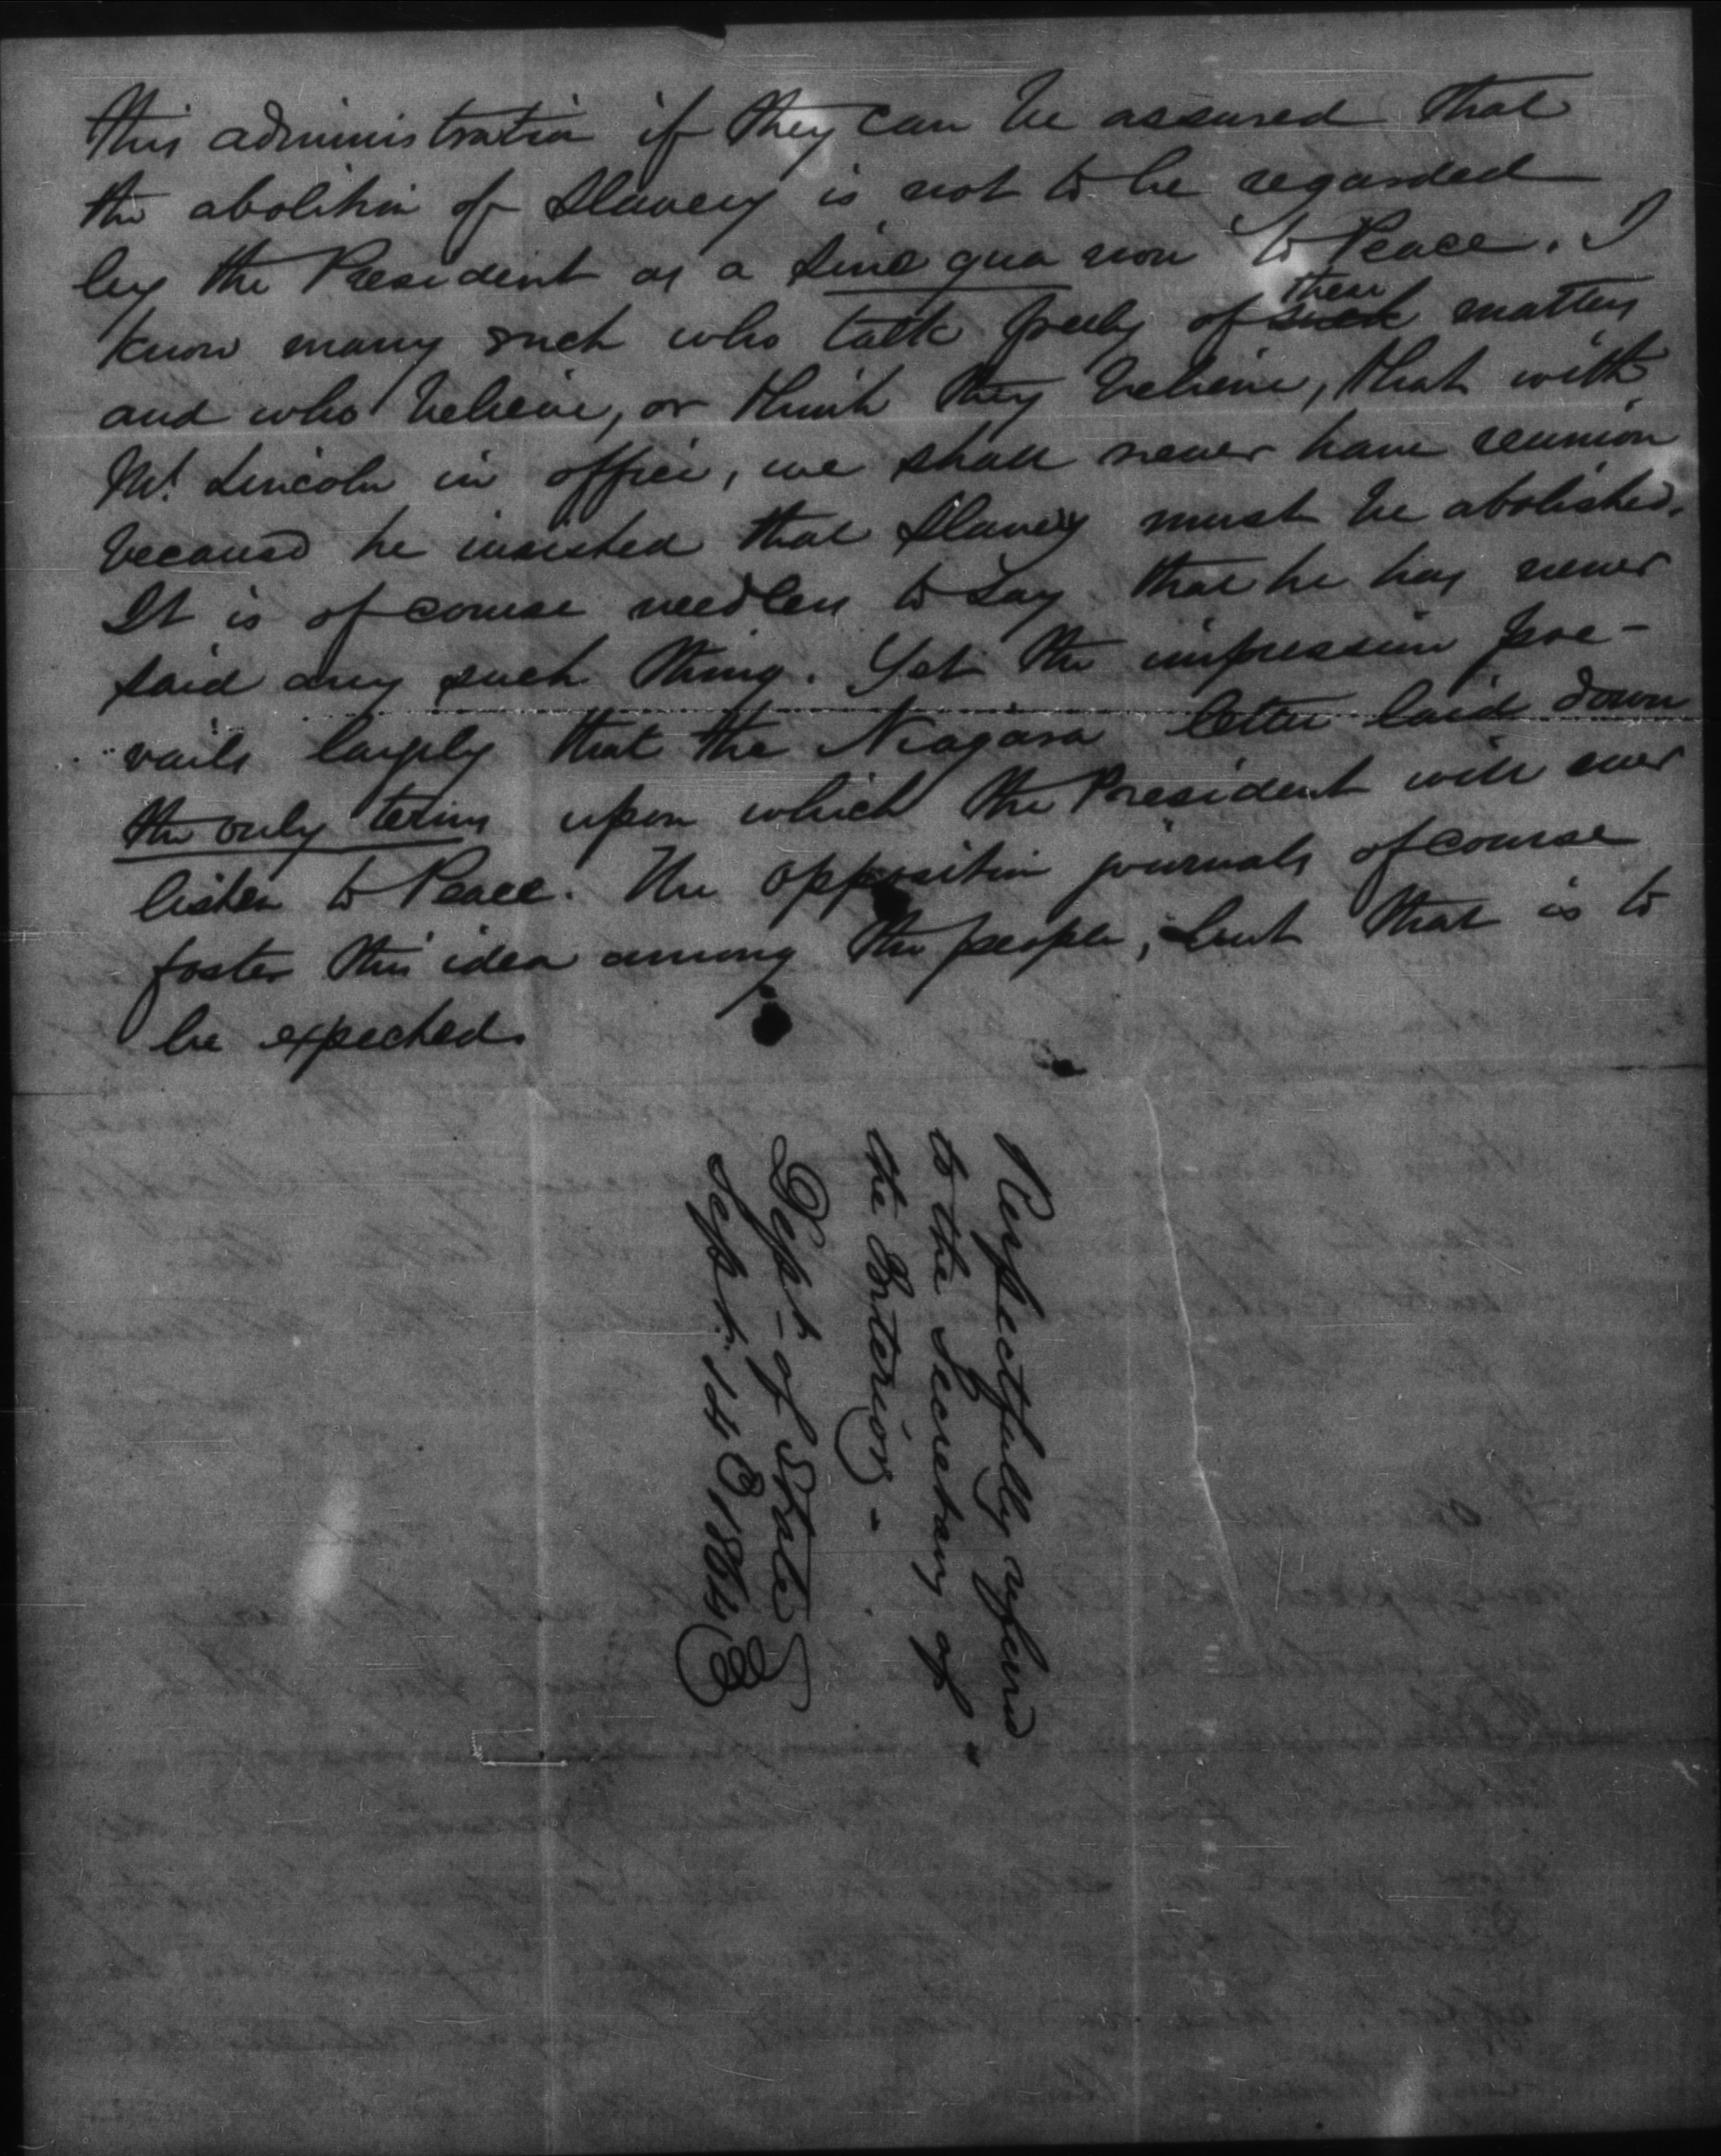 this administration if they can be assured that
the abolition of Slavery is not to be regarded
by the President as a sine qua non to Peace. I
know many such who talk freely of such these matters
and who believe, or think they believe, that with
Mr. Lincoln in office, we shall never have reunion
because he insisted that Slavery must be abolished.
It is of course needless to say that he has never
said any such thing. Yet the impression pre-
vails largely that the Niagara letter laid down
the only terms upon which the President will ever
listen to Peace. The opposition journals of course
foster this idea among the people, but that is to
be expected.
Respectfully referred
to the Secretary of
the Interior -
Dept. of State
Sept. 14 1864